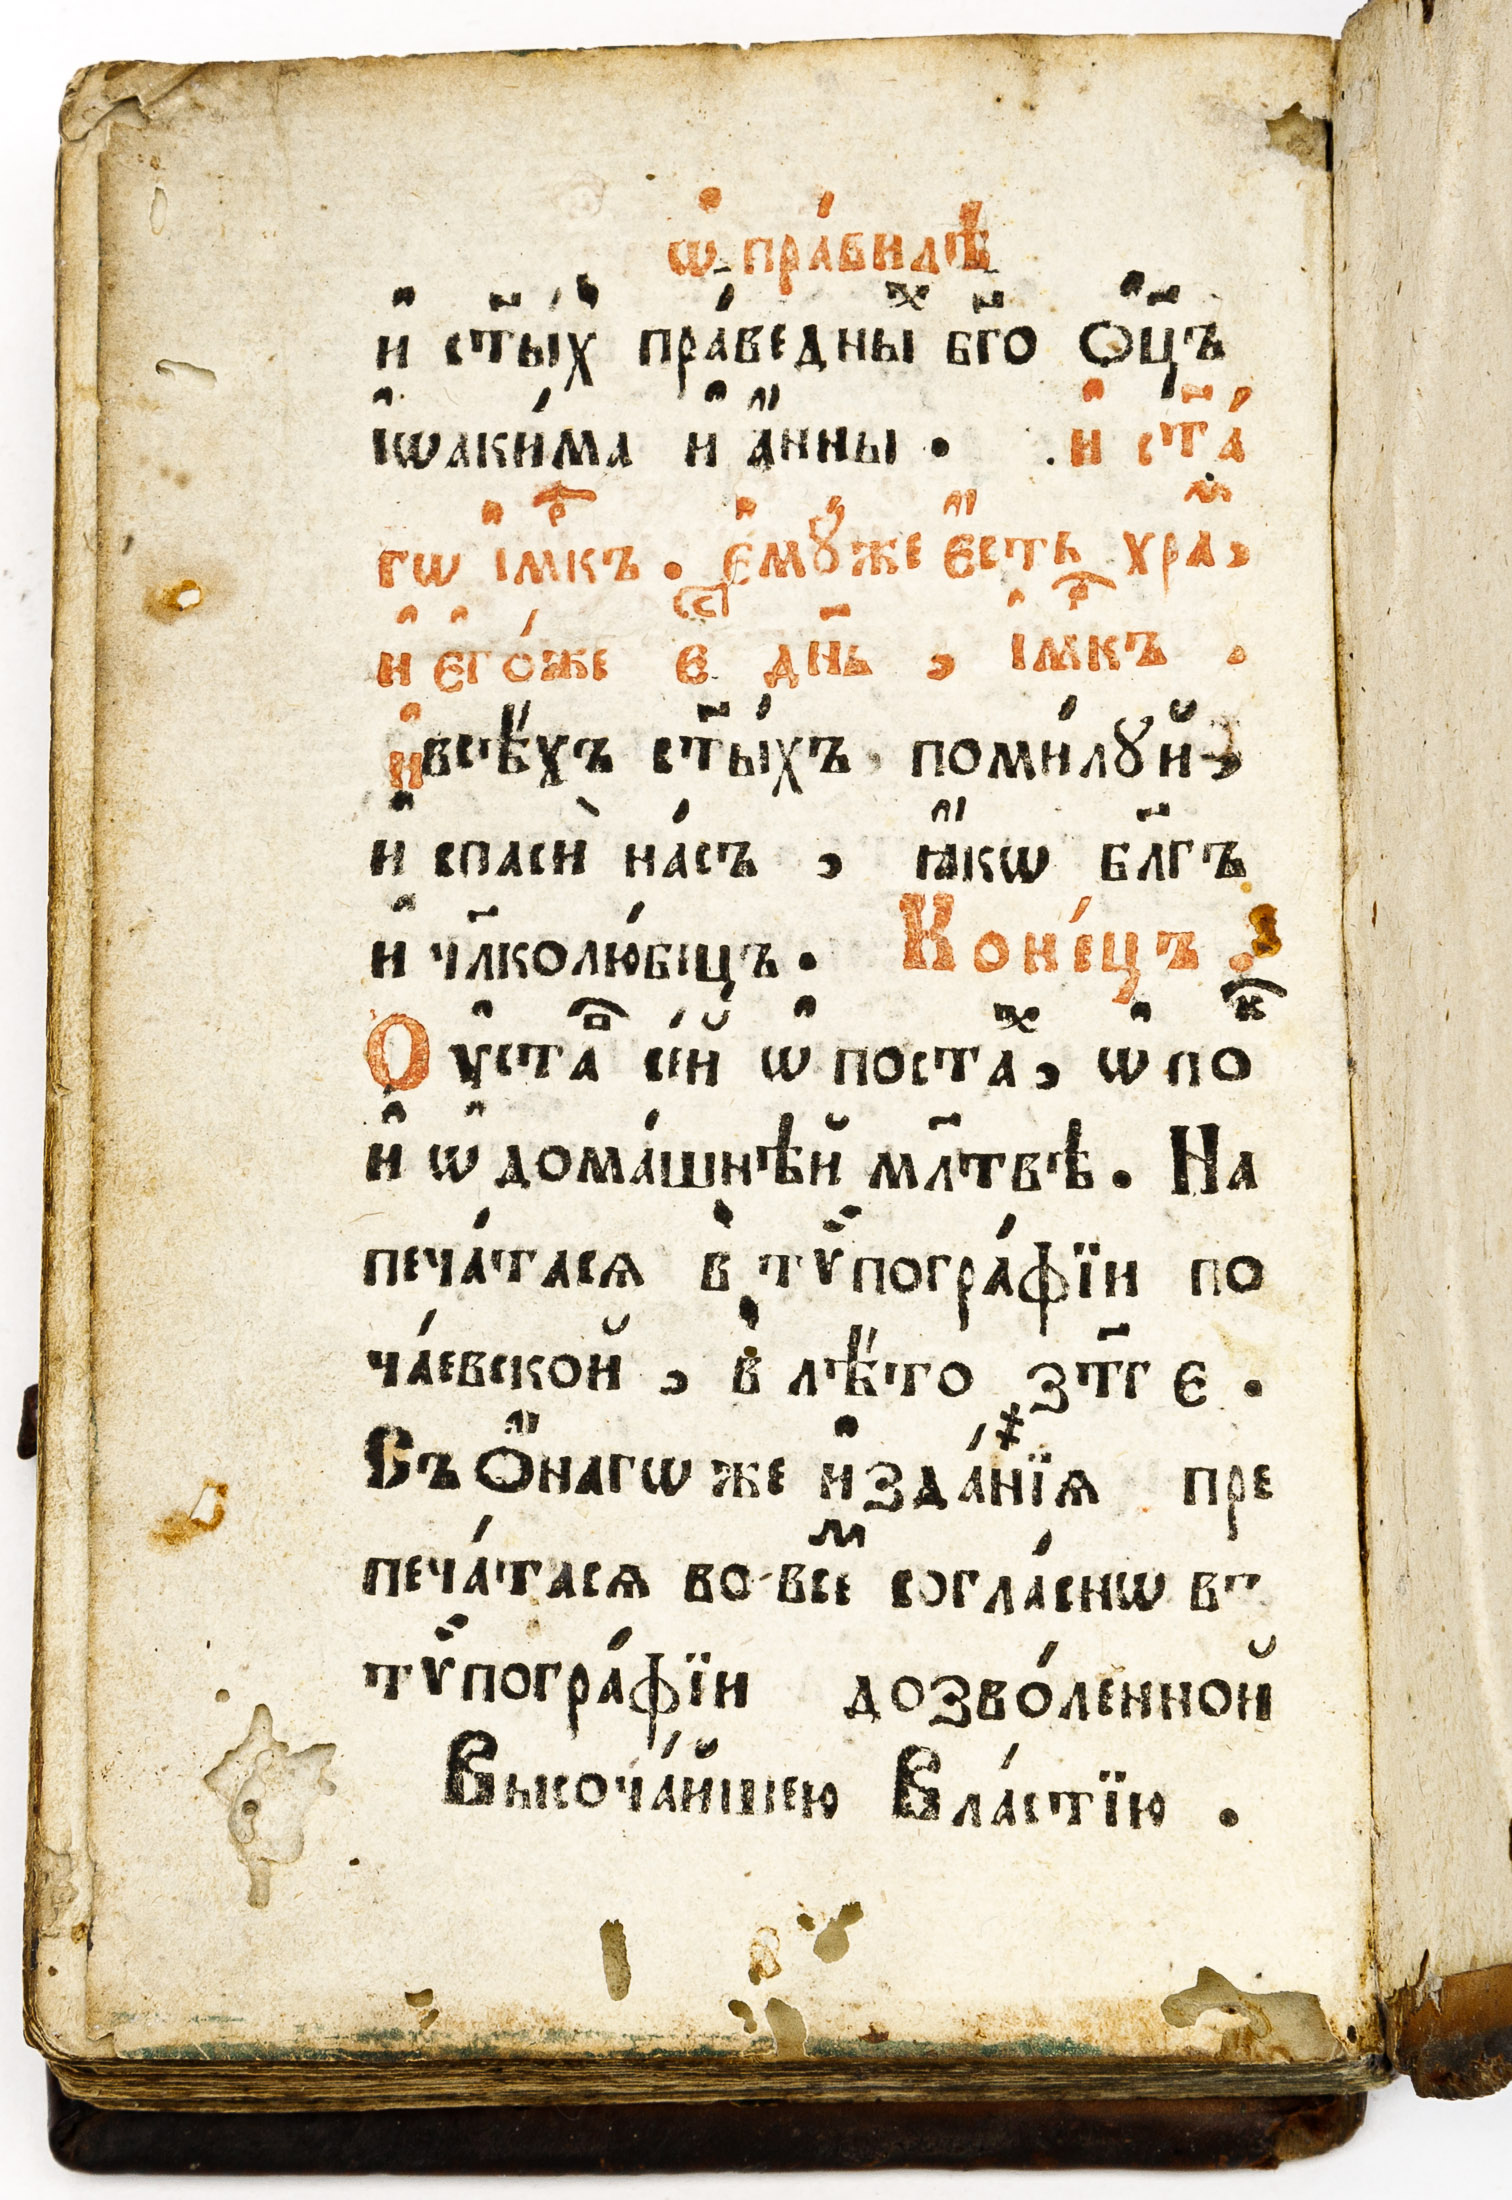 ѡ҆ пра́видѣ
и҆ ст҃ы́хъ пра́ведныⷯ бг҃оѻ҆ц҃ъ
і҆ѡаки́ма и҆ а҆́нны . и҆ ст҃а́
гѡ и҆м҃къ . є҆мꙋ́же є҆́сть храⷨ,
и҆ є҆го́же єⷭ҇ дн҃ь , и҆м҃къ .
и҆ всѣ́хъ ст҃ы́хъ, поми́лꙋй ,
и҆ спасѝ на́съ , ꙗ҆́кѡ бл҃гъ
и҆ чл҃колю́бецъ . Коне́цъ .
Оу҆ставⷡ҇ се́й ѡ҆ постаⷯ, ѡ҆ поⷦ҇
и҆ ѡ҆ дома́шнѣй мл҃твѣ . На
печа́тасѧ в̾ тѷпогра́фїи по
ча́евской , в̾ лѣ́то ҂зт҃г є .
Съ ѻ҆́нагѡ же и҆зда́нїѧ пре
печа́тасѧ во всеⷨ согла́снѡ въ
тѷпогра́фїи дозво́ленной
Высоча́йшею Вла́стїю .